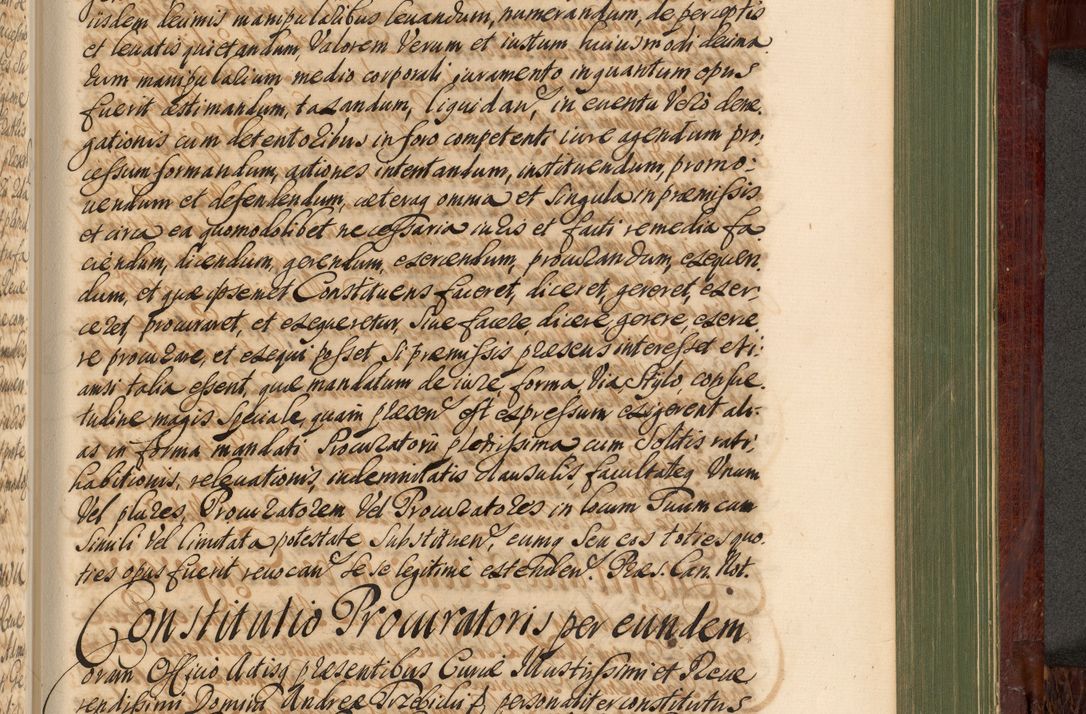 iisdem decimis manipulatibus levandum, numerandum, de perceptis
et levatis quietandum, Valorem Verum et iustum huiusmodi decima
rum manipulalium medio corporali juramento inquantum opus
fuerit æstimandum, taxandum, liquidan̄, in eventu Vero dene
gationis cum detentoribus in foro competenti iure agendum pro,
cessum formandum, actiones intentandum, instituendum, promo:
vendum et defendendum, cæteraq omnia et Singula in præmissis
et circa ea quomodolibet necessaria iuris et facti remedia fa
ciendum, dicendum, gerendum, exercendum, procurandum, exequen
dum, et quæ ipsemet Constituens faceret, diceret, gereret, exer-
ceret, procuraret, et exequeretur, Sive facere, dicere, gerere, exerce
re procurare, et exequi posset Si præmissis præsens interesset eti:
amsi talia essent, quæ mandatum de iure, forma, Via Stylo consue
tudine magis Speciale, quam præsen̄ est expressum exigerent ali-
as in forma mandati Procuratorii plenissima cum Solitis rati,
habitionis, relevationis, indemnitatis clausulis, facultateq Unum
Vel plures, Procuratorem Vel Procuratores in locum Suum cum
Simili Vel limitata potestate Substituen̄, eumq Seu eos toties quo
ties opus fuerit revocan̄ de se legitime extenden̄. Præs. Can. Not.
Constitutio Procuratoris per eundem
oram Officio Actisq præsentibus Curiæ Illustrissimi et Reve
rendissimi Domini Andreæ Trzebicki personaliter constitutus